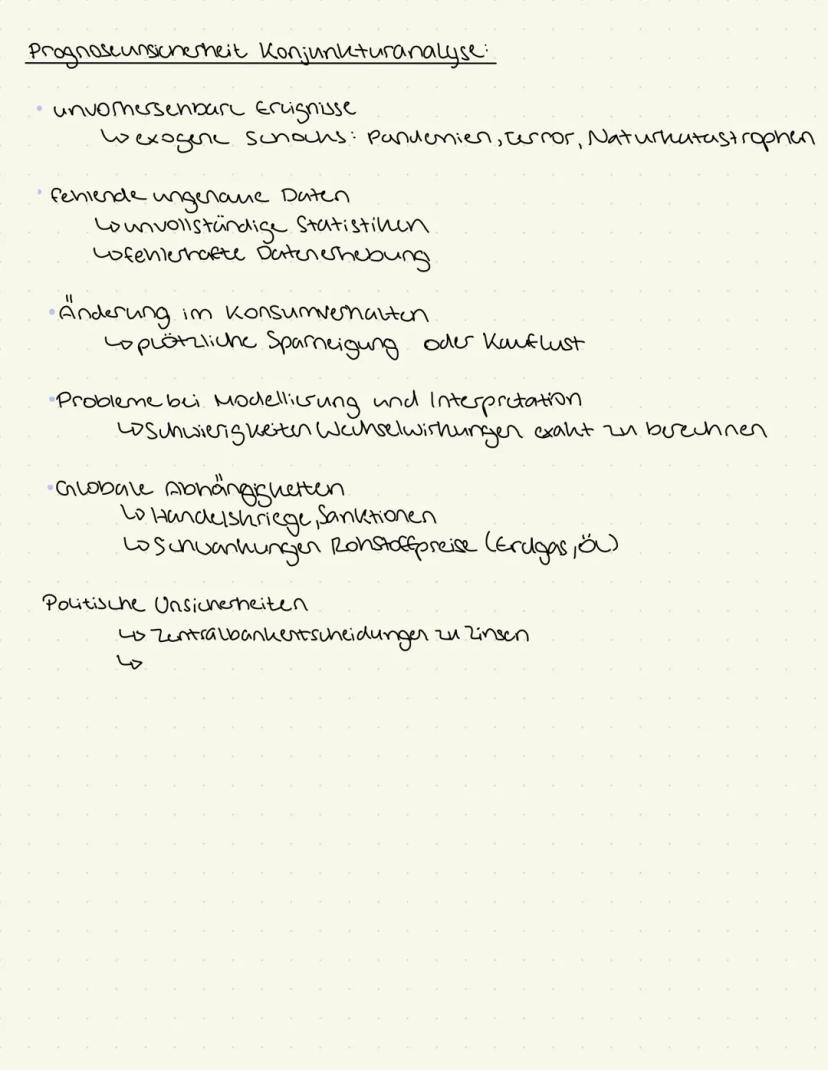 Prognoseunsicherheit Konjunkturanalyse:
• unvorhersehbare Ereignisse
↳ exogene Schocks: Pandemien, Terror, Naturkatastrophen
• fehlende ungenaue Daten
↳ unvollständige Statistiken
↳ fehlerhafte Datenerhebung
• Änderung im Konsumverhalten
↳ plötzliche Sparneigung oder Kauflust
• Probleme bei Modellierung und Interpretation
↳ Schwierigkeiten Wechselwirkungen exakt zu berechnen
• Globale Abhängigkeiten
↳ Handelskriege, Sanktionen
↳ Schwankungen Rohstoffpreise (Erdgas, Öl)
Politische Unsicherheiten
↳ Zentralbankentscheidungen zu Zinsen
↳